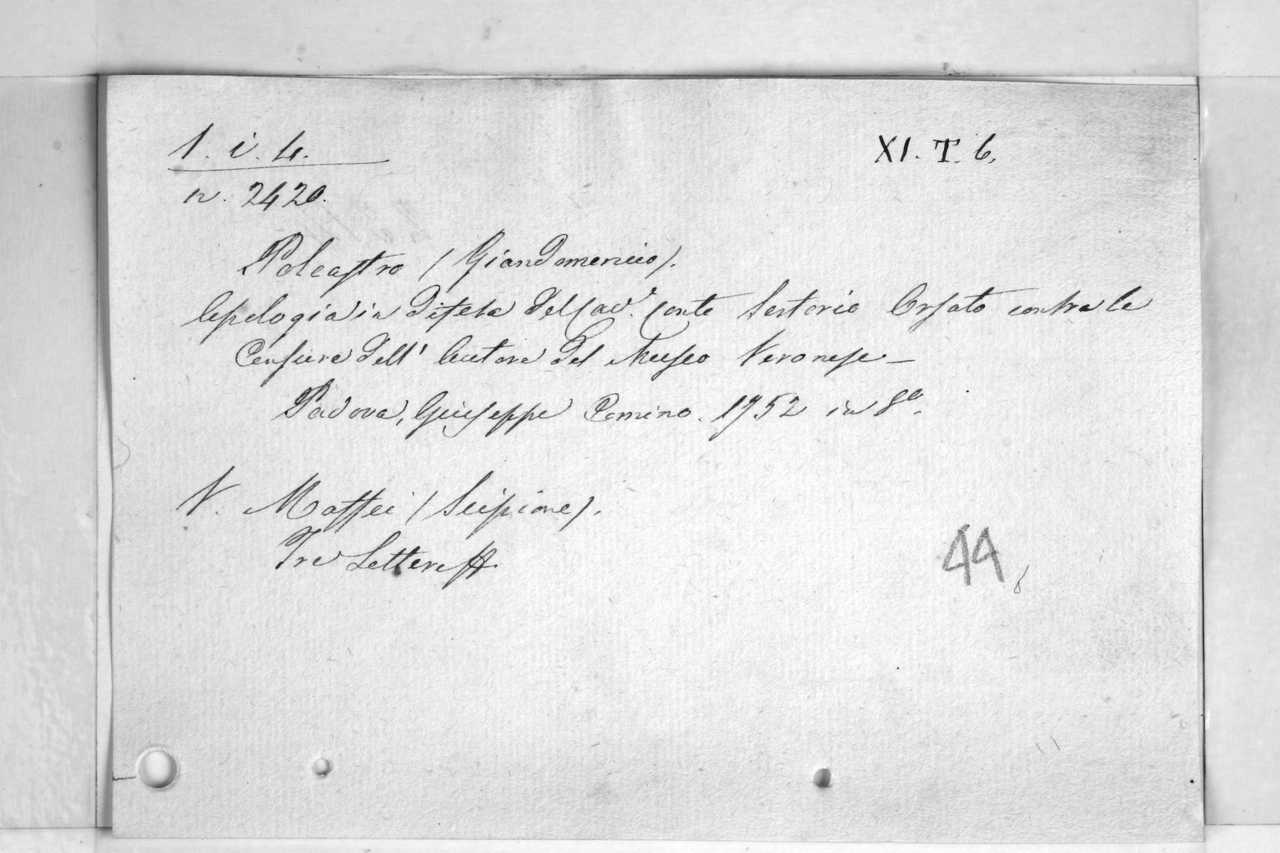 1. i. 4.
XI. T. 6.
n. 2420.
Polcastro (Giandomenico).
Apologia in difesa del Cav.r Conte Sertorio Orsato contra le
Censure dell' Autore del Museo Veronese –
Padova, Giuseppe Comino. 1752 in 8o.
V. Maffei (Scipione).
Tre Lettere
44